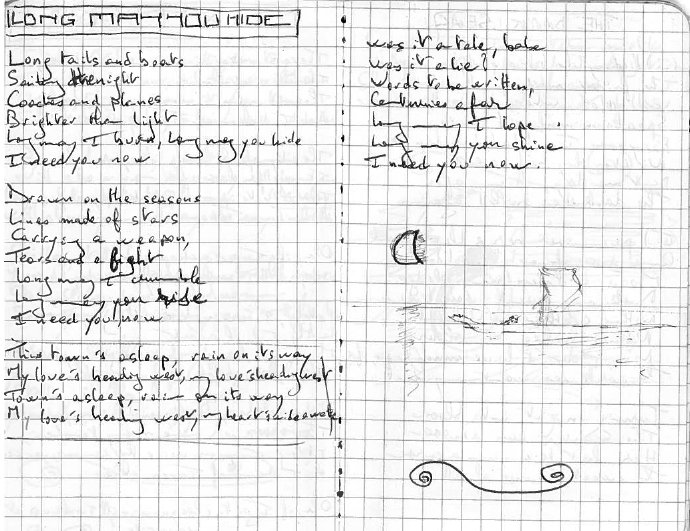 LONG MAY YOU HIDE
Long tails and boats
Sailing the night
Coaches and planes
Brighter than light
Long may I burn, Long may you hide
I need you now
Drawn on the seasons
Lines made of stars
Carrying a weapon,
Tears and a fight
Long may I crumble
Long may you hide
I need you now
This town's asleep, rain on its way
My love's heading west, my love's heading west
Town's asleep, rain on its way
My love's heading west, my heart's wide awake
was it a tale, babe
Was it a lie?
Words to be written,
Centuries afar
Long may I hope
Long may you shine
I need you now.